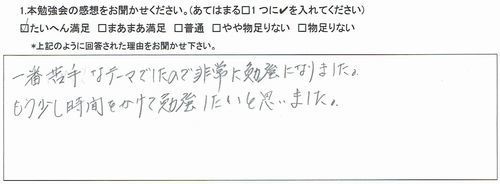 1.本勉強会の感想をお聞かせください。(あてはまる□1つに✔を入れてください)
☑たいへん満足 □まあまあ満足 □普通 □やや物足りない □物足りない
*上記のように回答された理由をお聞かせ下さい。
一番苦手なテーマでしたので非常に勉強になりました。
もう少し時間をかけて勉強したいと思いました。